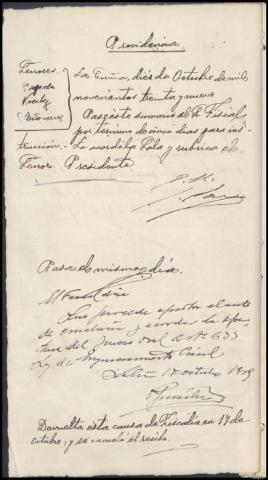 Providencia.
Señores. La Coruña, diez de Octubre de mil
novecientos treinta y nueve
Pase este sumario al Sr. Fiscal
por termino de cinco dias para ins-
trucción.- Lo acordó la Sala y rubrica el
Señor Presidente.
Pasa el mismo día.
El Fiscal dice
Que procede aprobar el auto
de conclusion y acordar la aper-
tura del juicio oral art 633
Ley de Enjuiciamiento Criminal
17 octubre 1939
Devuelta esta causa de Fiscalía en 17 de
Octubre, y se canceló el recibo.